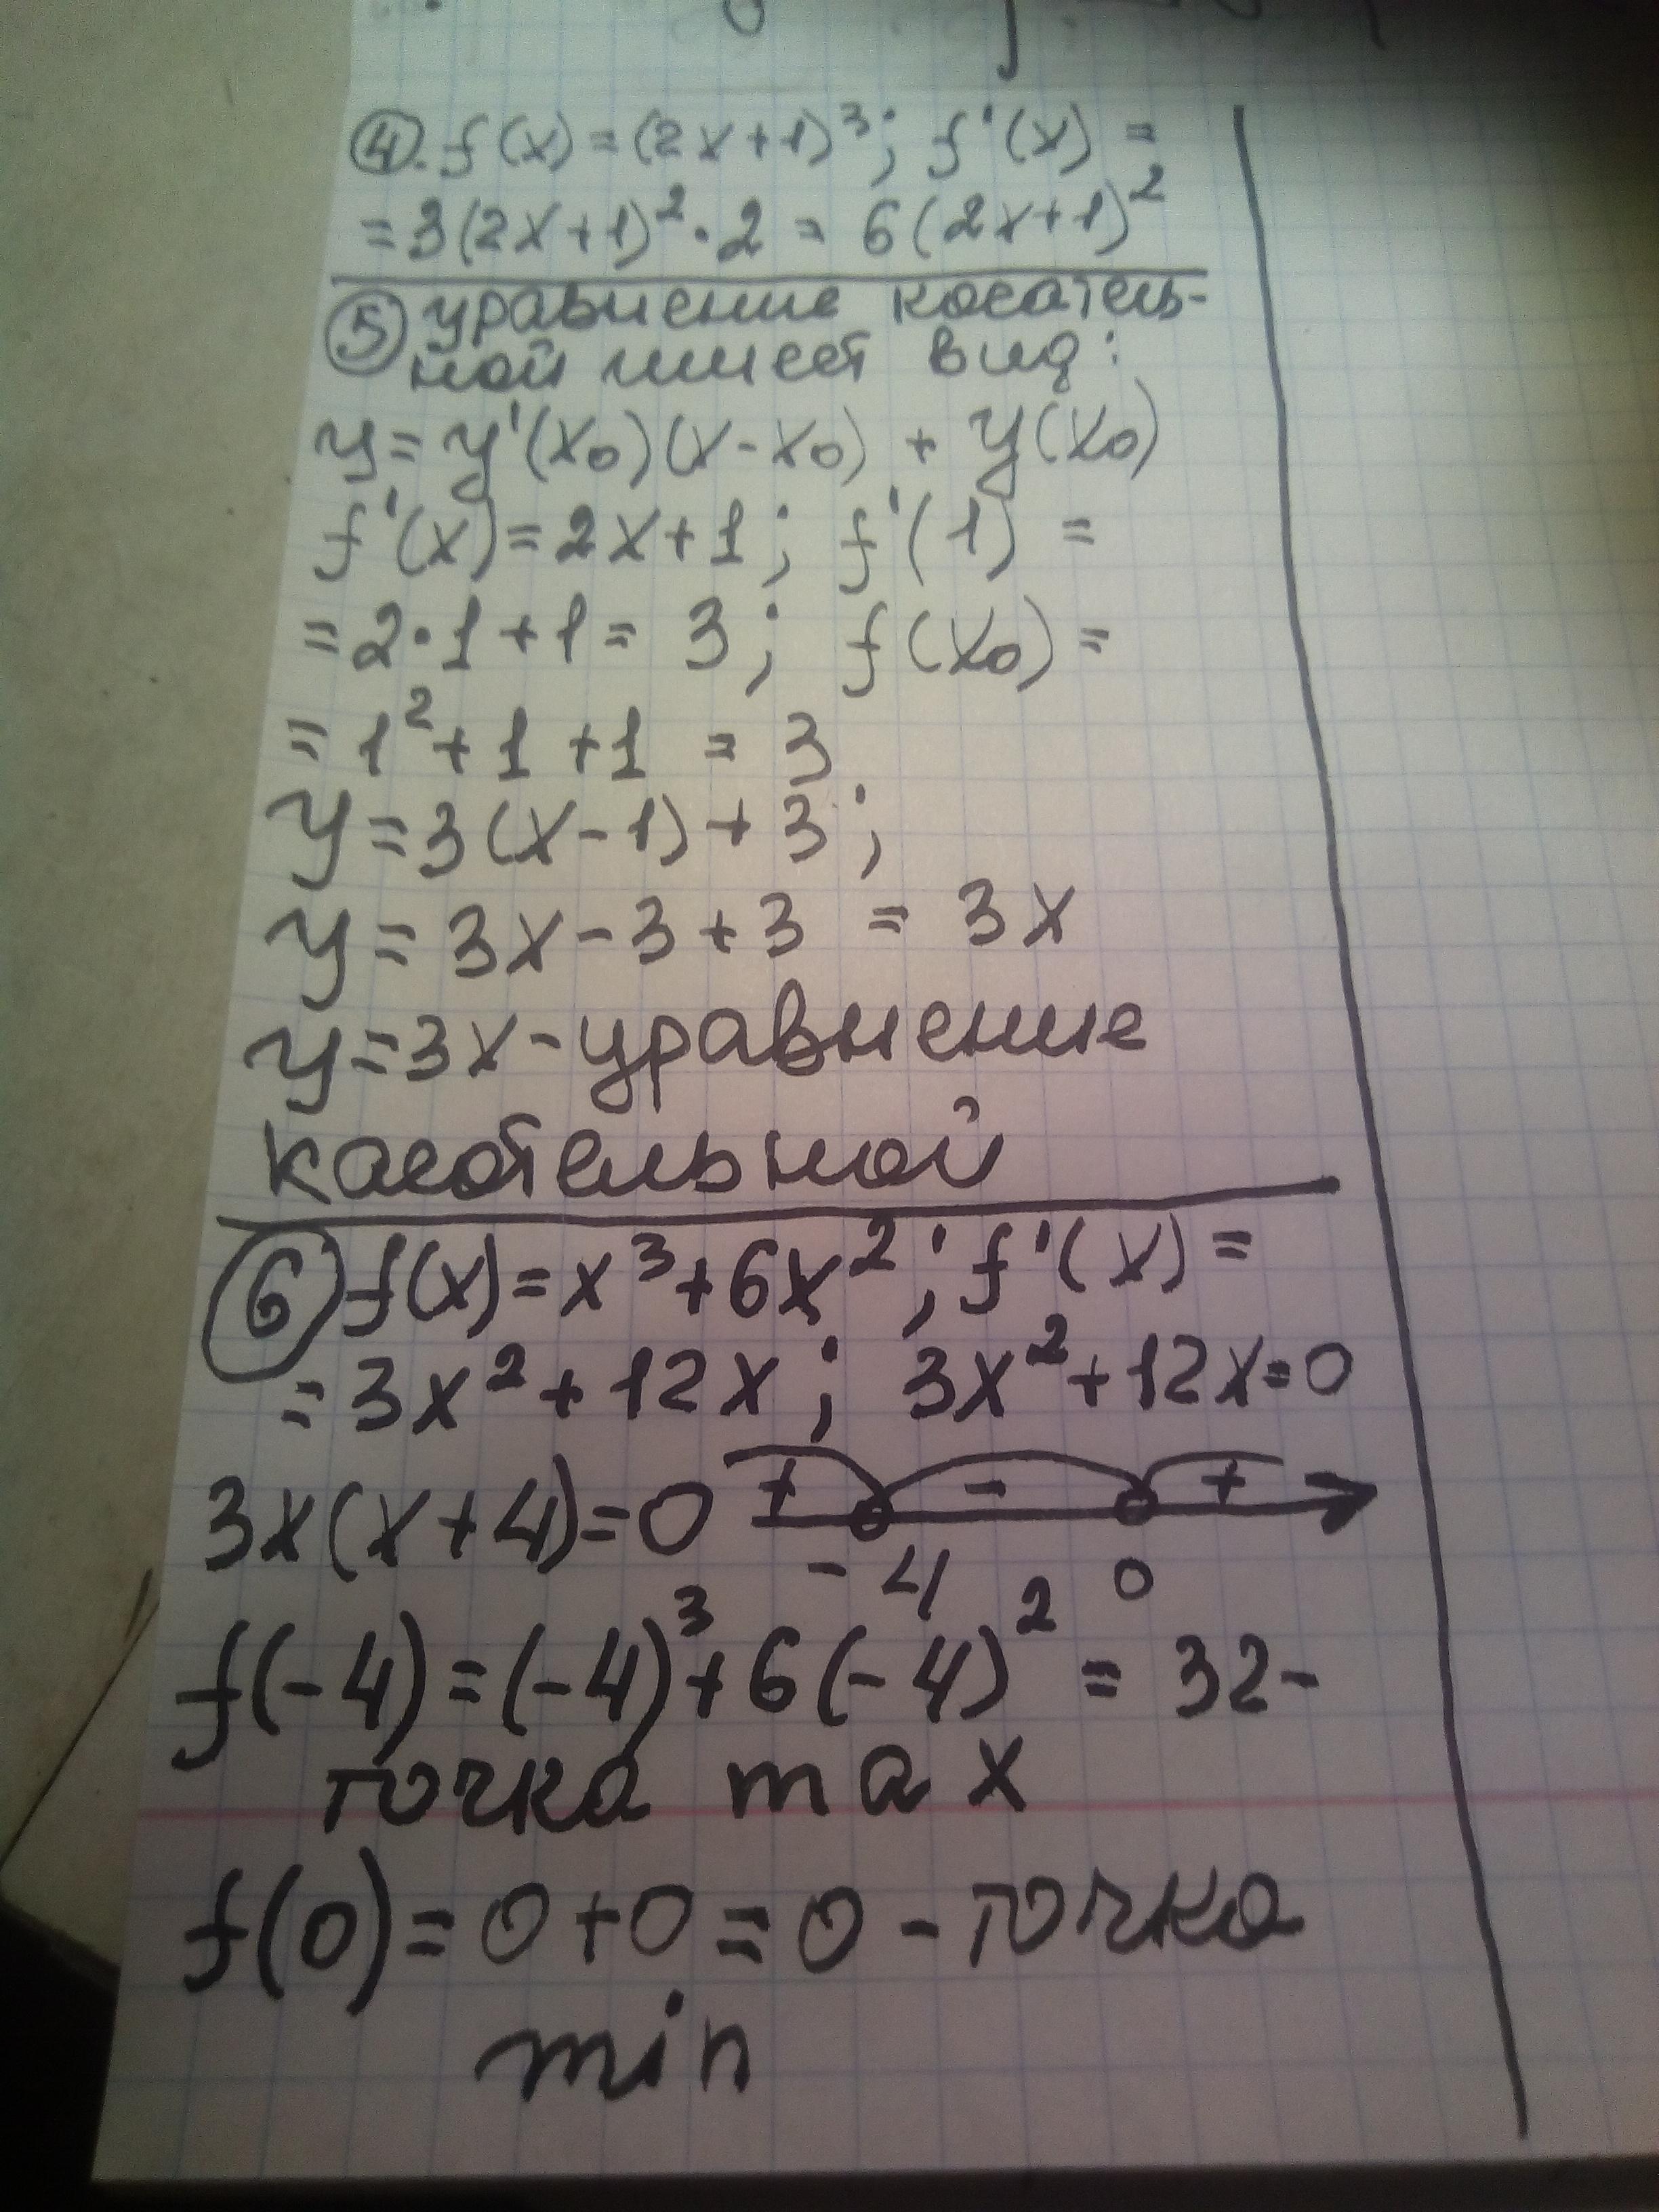 ④. f(x) = (2x+1)³; f'(x) =
= 3(2x+1)²·2 = 6(2x+1)²
⑤ уравнение касатель-
ной имеет вид:
y = y'(x₀)(x-x₀) + y(x₀)
f'(x) = 2x+1; f'(1) =
= 2·1+1 = 3; f(x₀) =
= 1²+1+1 = 3
y = 3(x-1)+3;
y = 3x-3+3 = 3x
y=3x-уравнение
касательной
⑥ f(x)=x³+6x²; f'(x) =
= 3x²+12x; 3x²+12x=0
3x(x+4)=0 + - +
-4 0
f(-4)=(-4)³+6(-4)² = 32-
точка max
f(0)=0+0=0-точка
min